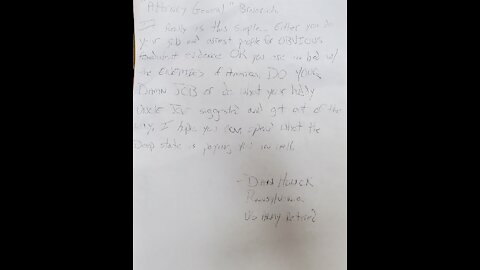 "Attorney General" Brnovich
It Really is this simple... Either you do
your job and arrest people for OBVIOUS
fraudulent evidence OR you are in bed w/
the ENEMIES of America. DO YOUR
Damn JOB or do what your buddy
suggested and get out of the
way. I hope you what the
Deep state is paying you well.
-
Pennsylvania
US Army Retired